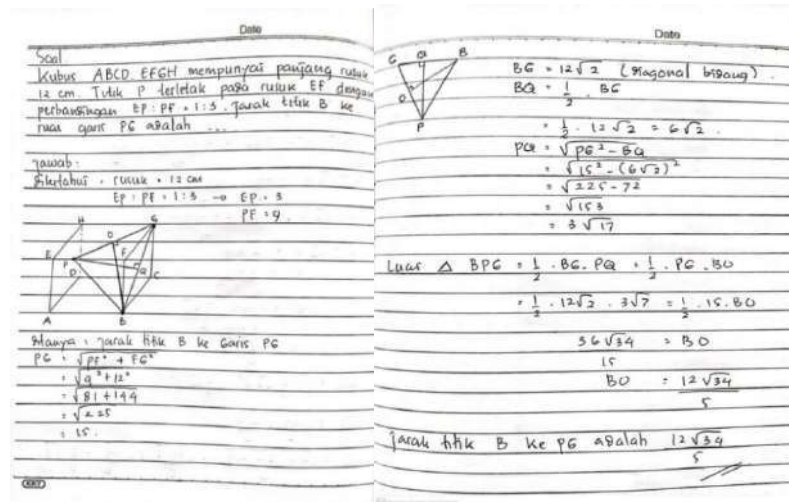 Date
Soal
Kubus ABCD.EFGH mempunyai panjang rusuk
12 cm. Titik P terletak pada rusuk EF dengan
perbandingan EP : PF = 1 : 3. Jarak titik B ke
ruas garis PG adalah ...
Jawab :
Diketahui : rusuk = 12 cm
EP : PF = 1 : 3 → EP = 3
PF = 9
H
G
O
E
P
F
D
Q
C
A
B
Ditanya : jarak titik B ke Garis PG
PG = √PF² + FG²
= √9² + 12²
= √81 + 144
= √225
= 15.
Date
G Q B
O
P
BG = 12√2 (diagonal bidang).
BQ = 1/2 . BG
= 1/2 . 12√2 = 6√2.
PQ = √PG² - BQ
= √15² - (6√2)²
= √225 - 72
= √153
= 3√17
Luas △ BPG = 1/2 . BG . PQ = 1/2 . PG . BO
= 1/2 . 12√2 . 3√7 = 1/2 . 15 . BO
36√34 / 15 = BO
BO = 12√34 / 5
Jarak titik B ke PG adalah 12√34 / 5